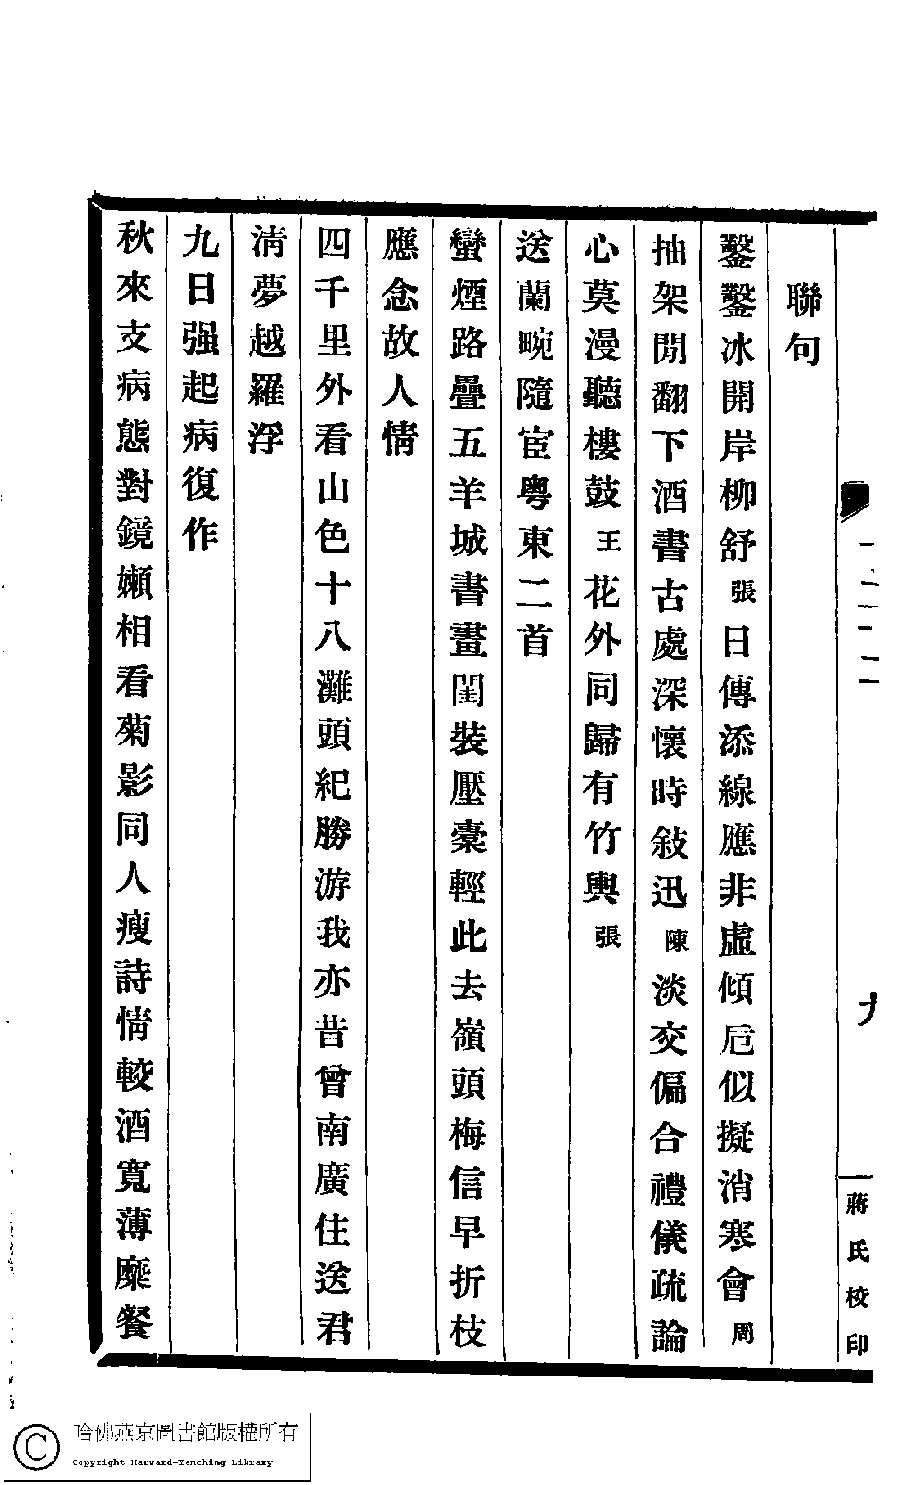 聯句
鑿鑿冰開岸柳舒張日傳添線應非虛傾卮似擬消寒會周
抽架閒翻下酒書古處深懷時敍迅陳淡交偏合禮儀疏論
心莫漫聽樓鼓王花外同歸有竹輿張
送蘭畹隨宦粵東二首
蠻煙路疊五羊城書畫閨裝壓橐輕此去嶺頭梅信早折枝
應念故人情
四千里外看山色十八灘頭紀勝游我亦昔曾南廣住送君
淸夢越羅浮
九日强起病復作
秋來支病態對鏡嬾相看菊影同人瘦詩情較酒寬薄糜餐
蔣氏校印
哈佛燕京圖書館版權所有
Copyright Harvard-Yenching Library